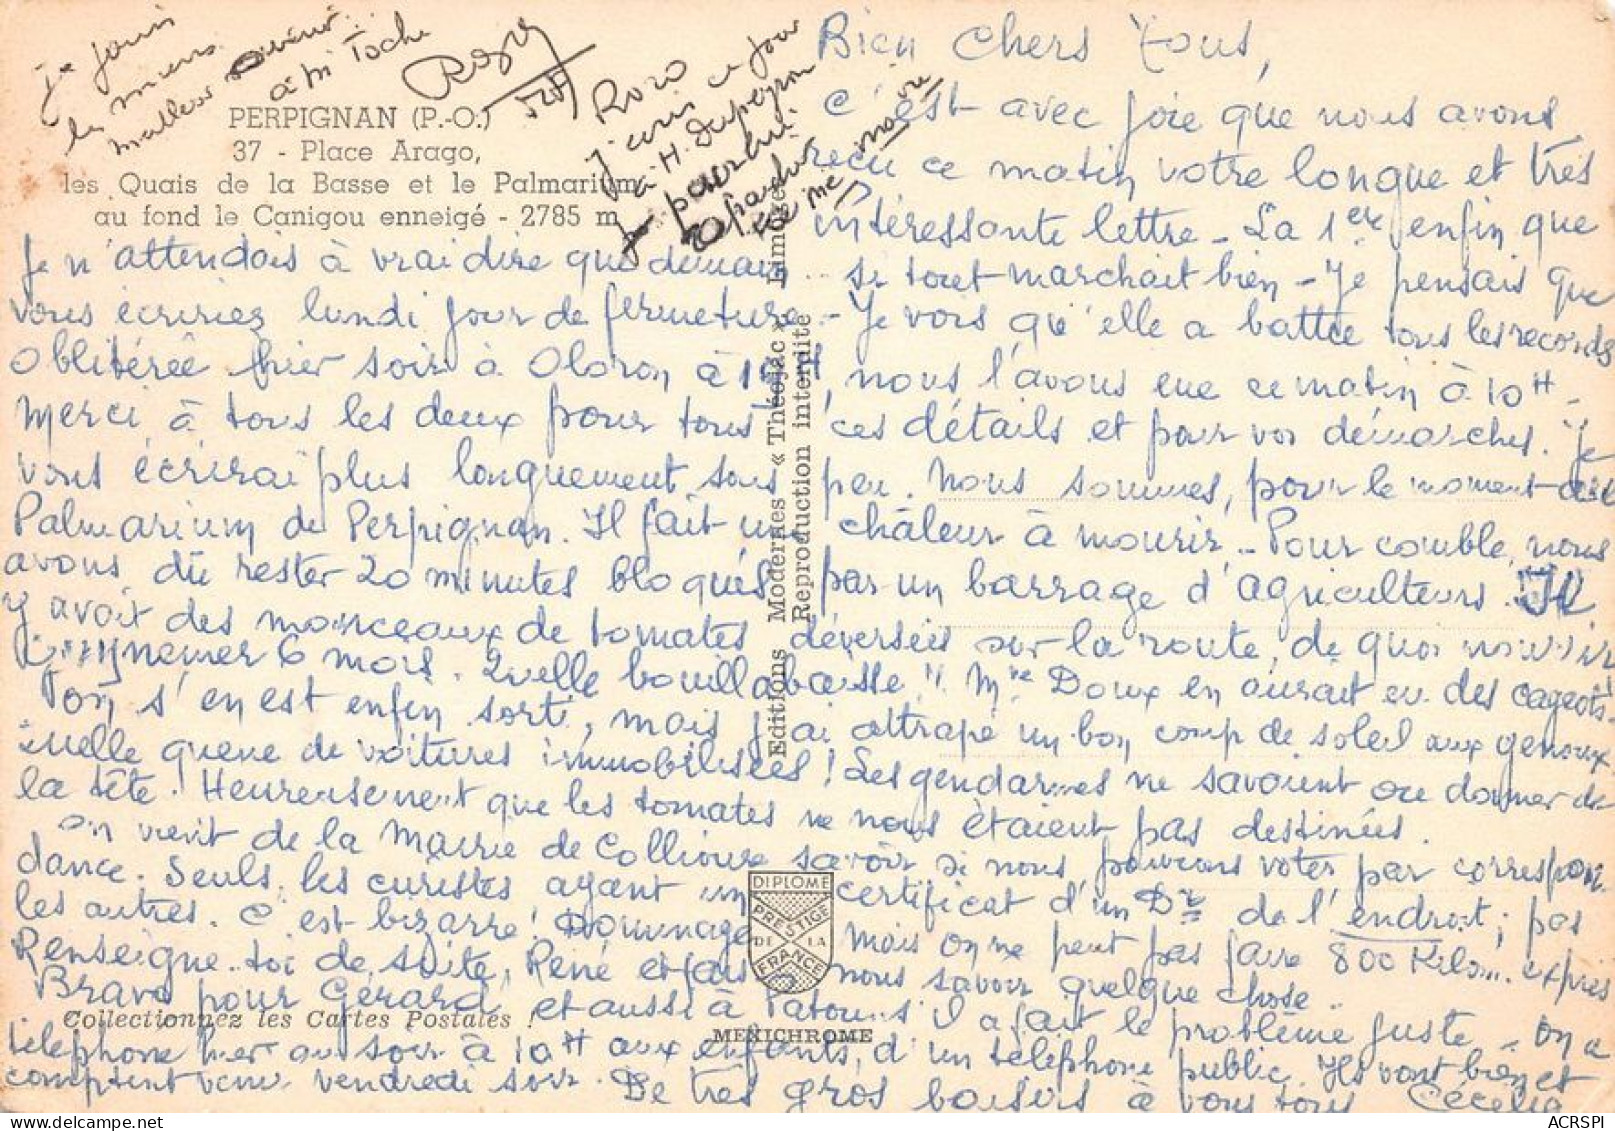 Bien chers tous,
c'est avec joie que nous avons
reçu ce matin votre longue et très
intéressante lettre - La 1ère enfin que
je n'attendais à vrai dire que demain si tout marchait bien - Je pensais que
vous écririez lundi jour de fermeture - Je vois qu'elle a battue tous les records
Oblitérée hier soir à Oloron à 19H, nous l'avons eue ce matin à 10H -
Merci à tous les deux pour tous ces détails et pour vos démarches. Je
vous écrirai plus longuement sous peu. Nous sommes, pour le moment au
Palmarium de Perpignan. Il fait une châleur à mourir - Pour comble, nous
avons dû rester 20 minutes bloqués par un barrage d'agriculteurs. Il
y avait des monceaux de tomates déversées sur la route, de quoi nourrir
6 mois. Quelle bouillabaisse !! Mme Doux en aurait eu des cageots.
On s'en est enfin sorti, mais j'ai attrapé un bon coup de soleil aux genoux.
quelle queue de voitures immobilisées ! Les gendarmes ne savaient où donner de
la tête. Heureusement que les tomates ne nous étaient pas destinées.
On vient de la Mairie de Collioure savoir si nous pouvions voter par correspon
dance. Seuls, les curistes ayant un certificat d'un Dr de l'endroit ; pas
les autres. C'est bizarre ! Dommage mais on ne peut pas faire 800 Kilom. exprès
Renseigne-toi de suite, René et fais nous savoir quelque chose..
Bravo pour Gérard et aussi à il a fait le problème juste - On a
téléphoné hier au soir à 10H aux enfants, d'un téléphone public. Ils vont bien et
comptent venir vendredi soir. De très gros baisers à vous tous Cécélia
je joins
les miens.
meilleur souvenir
à Mr Toche
Roger
Roro
j'écris ce jour
à H. Dupeyron
pour lui
PERPIGNAN (P.-O.)
37 - Place Arago,
les Quais de la Basse et le Palmarium
au fond le Canigou enneigé - 2785 m
Editions Modernes « Théojac » Limoges
Reproduction interdite
DIPLOME
PRESTIGE
DE LA
FRANCE
Collectionnez les Cartes Postales !
MEXICHROME
ACRSPI